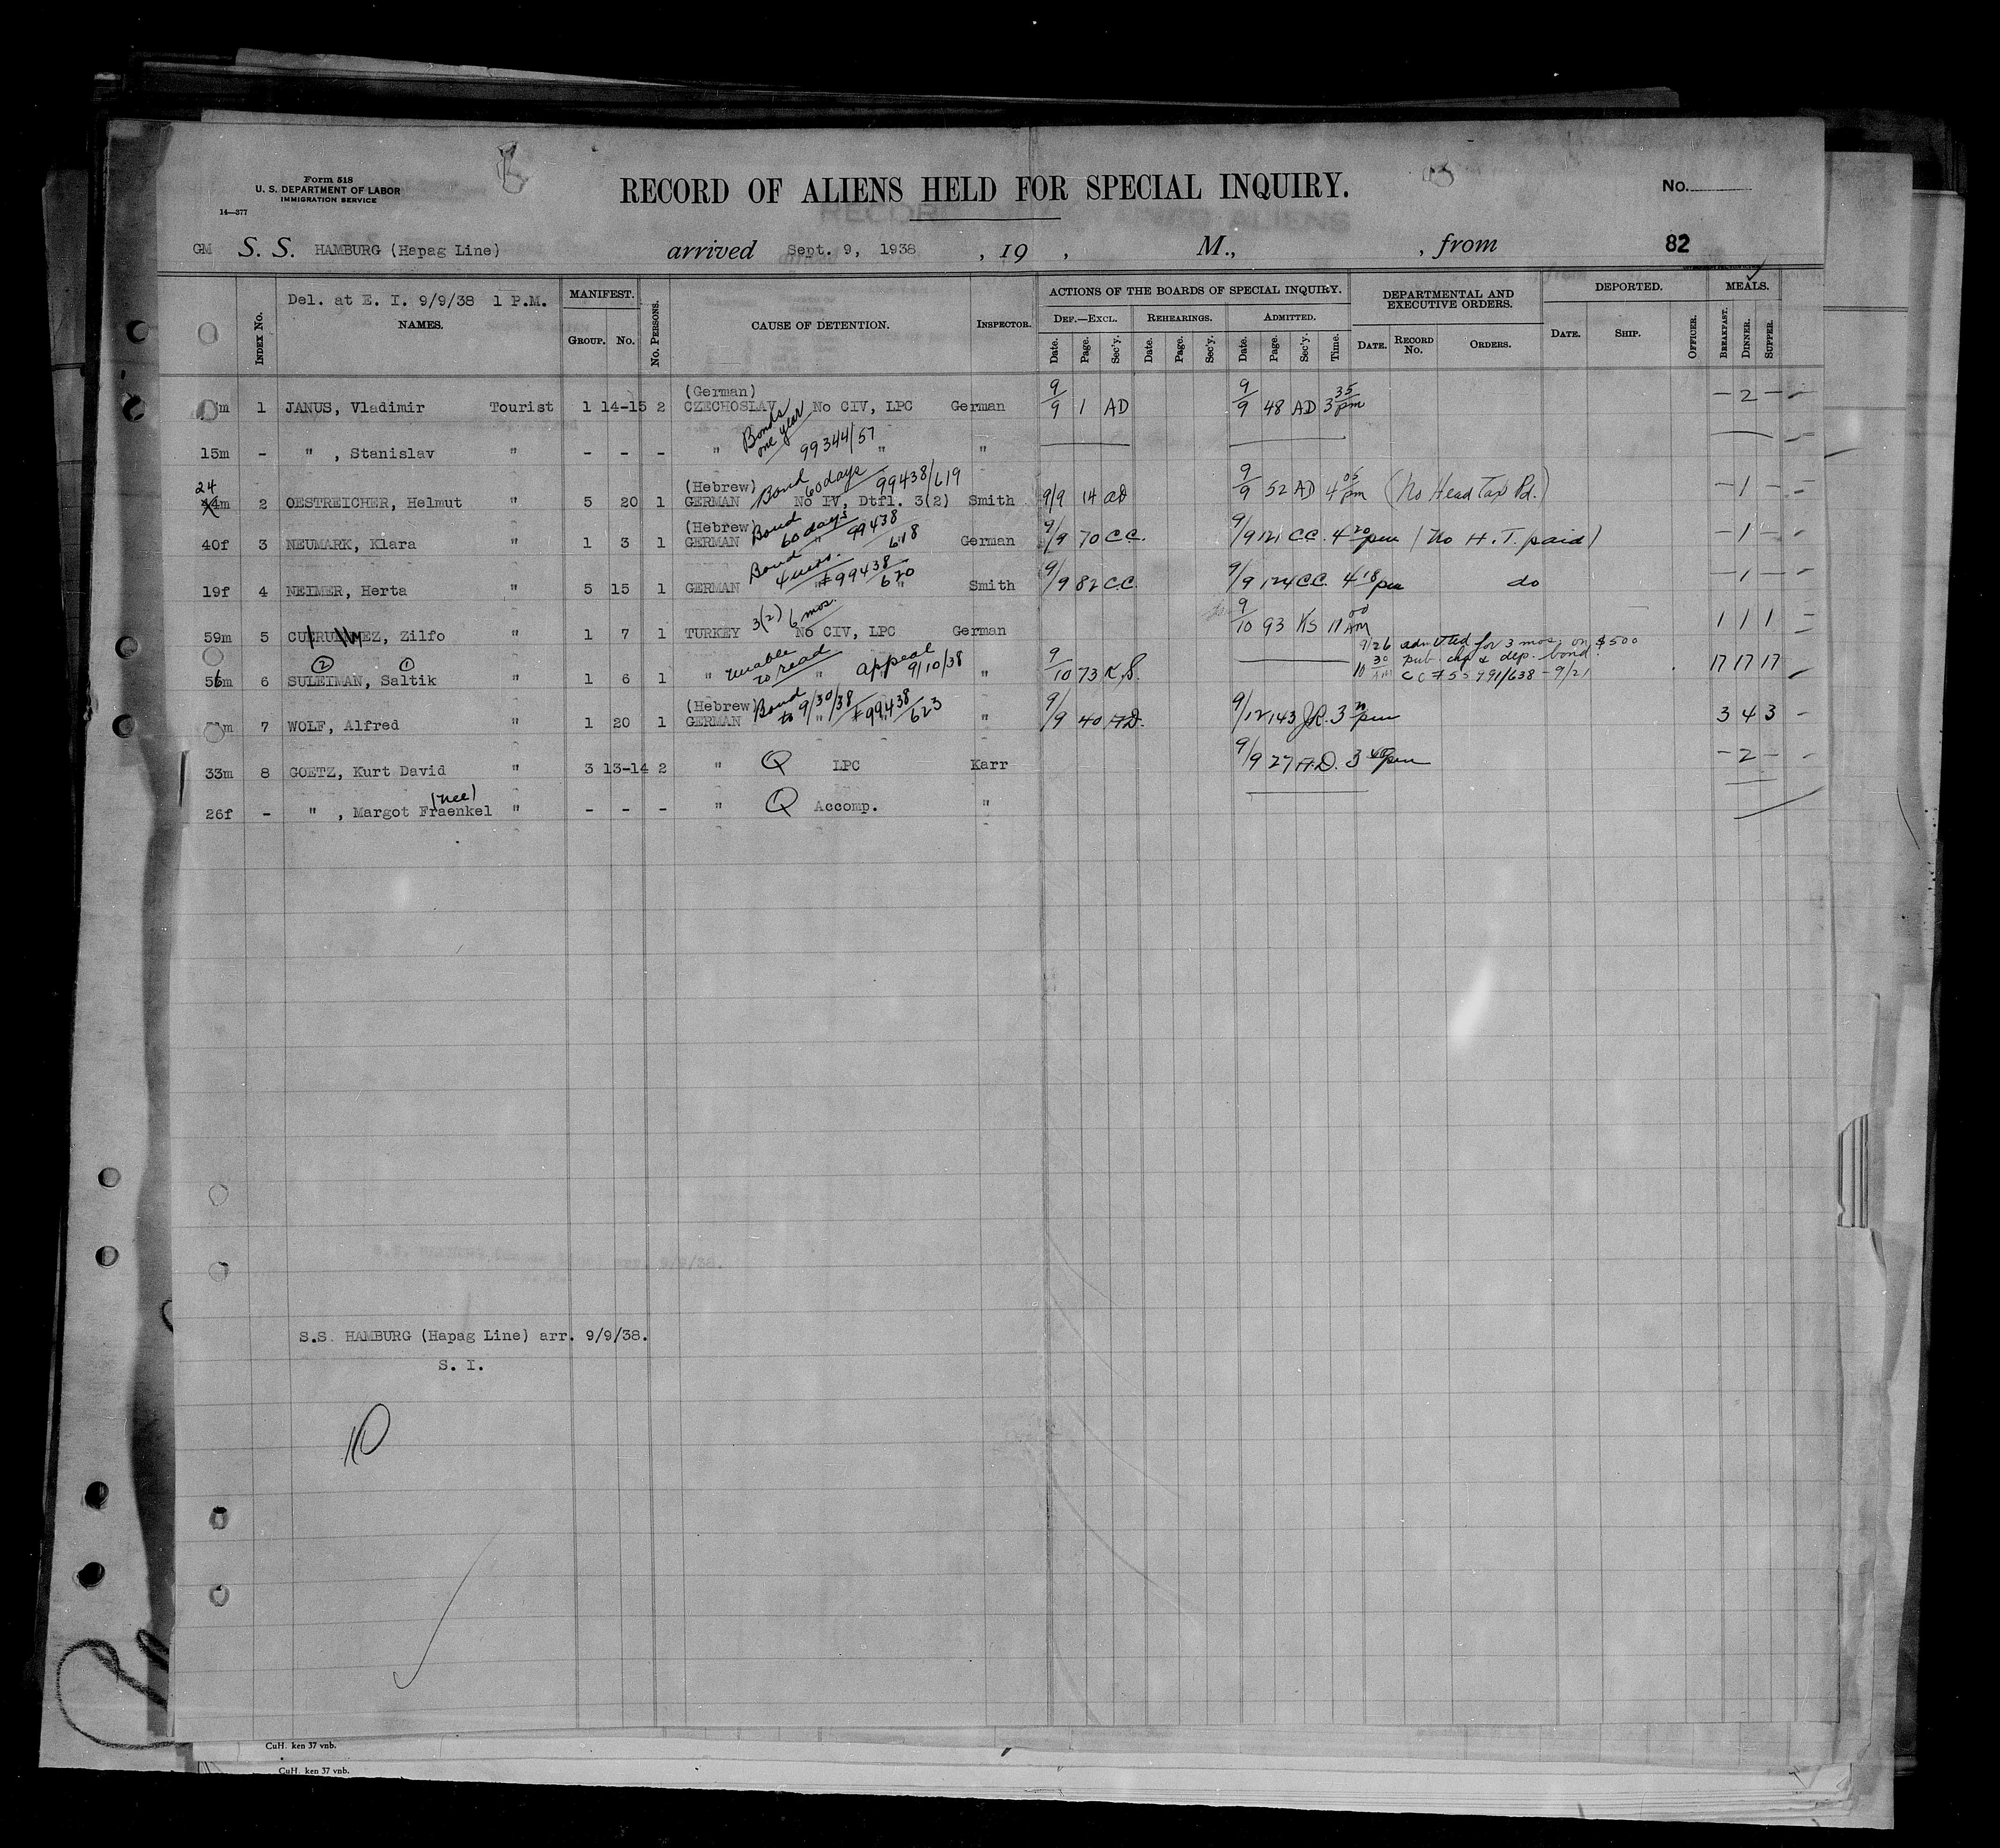 Form 518
U. S. DEPARTMENT OF LABOR
IMMIGRATION SERVICE
14—377
RECORD OF ALIENS HELD FOR SPECIAL INQUIRY.
No.
GM S. S. HAMBURG (Hapag Line) arrived Sept. 9, 1938 , 19 , M., , from 82
Del. at E. I. 9/9/38 1 P.M.
INDEX No. NAMES. MANIFEST. GROUP. No. No. PERSONS. CAUSE OF DETENTION. INSPECTOR. ACTIONS OF THE BOARDS OF SPECIAL INQUIRY. DEPARTMENTAL AND EXECUTIVE ORDERS. DEPORTED. MEALS.
DEF.—EXCL. REHEARINGS. ADMITTED.
Date. Page. Sec'y. Date. Page. Sec'y. Date. Page. Sec'y. Time. DATE. RECORD No. ORDERS. DATE. SHIP. OFFICER. BREAKFAST. DINNER. SUPPER.
(German)
m 1 JANUS, Vladimir Tourist 1 14-15 2 CZECHOSLAV. No CIV, LPC German 9/9 1 AD 9/9 48 AD 3 35 pm — 2 —
Bonds one year 99344/57
15m - " , Stanislav " - - - " " "
24
(Hebrew) Bond 60 days 99438/619
44m 2 OESTREICHER, Helmut " 5 20 1 GERMAN No IV, Dtfl. 3(2) Smith 9/9 14 AD 9/9 52 AD 4 05 pm (No Head Tax Pd.) — 1 —
(Hebrew) Bond 60 days 99438/618
40f 3 NEUMARK, Klara " 1 3 1 GERMAN " German 9/9 70 C.C. 9/9 121 C.C. 4 20 pm (No H. T. paid) — 1 —
Bond #99438/620
19f 4 NEIMER, Herta " 5 15 1 GERMAN " Smith 9/9 82 C.C. 9/9 124 C.C. 4 18 pm do — 1 —
3(2) 6 mos.
59m 5 CUERUEMEZ, Zilfo " 1 7 1 TURKEY No CIV, LPC German 9/10 93 KS 11 00 AM 1 1 1
9/26 admitted for 3 mos. on $500
② ① unable to read appeal 9/10/38
56m 6 SULEIMAN, Saltik " 1 6 1 " " " 9/10 73 K.S. 10 30 AM pub. chg & dep. bond. 17 17 17
CC #5 - 991/638 - 9/21
(Hebrew) Bond to 9/30/38 #99438/623
m 7 WOLF, Alfred " 1 20 1 GERMAN " " 9/9 40 A.D. 9/12 143 J.R. 3 pm 3 4 3
33m 8 GOETZ, Kurt David " 3 13-14 2 " Q LPC Karr 9/9 27 A.D. 3 40 pm — 2 —
(nee)
26f - " , Margot Fraenkel " - - - " Q Accomp. "
S.S. HAMBURG (Hapag Line) arr. 9/9/38.
S. I.
10
CuH. ken 37 vnb.
CuH. ken 37 vnb.